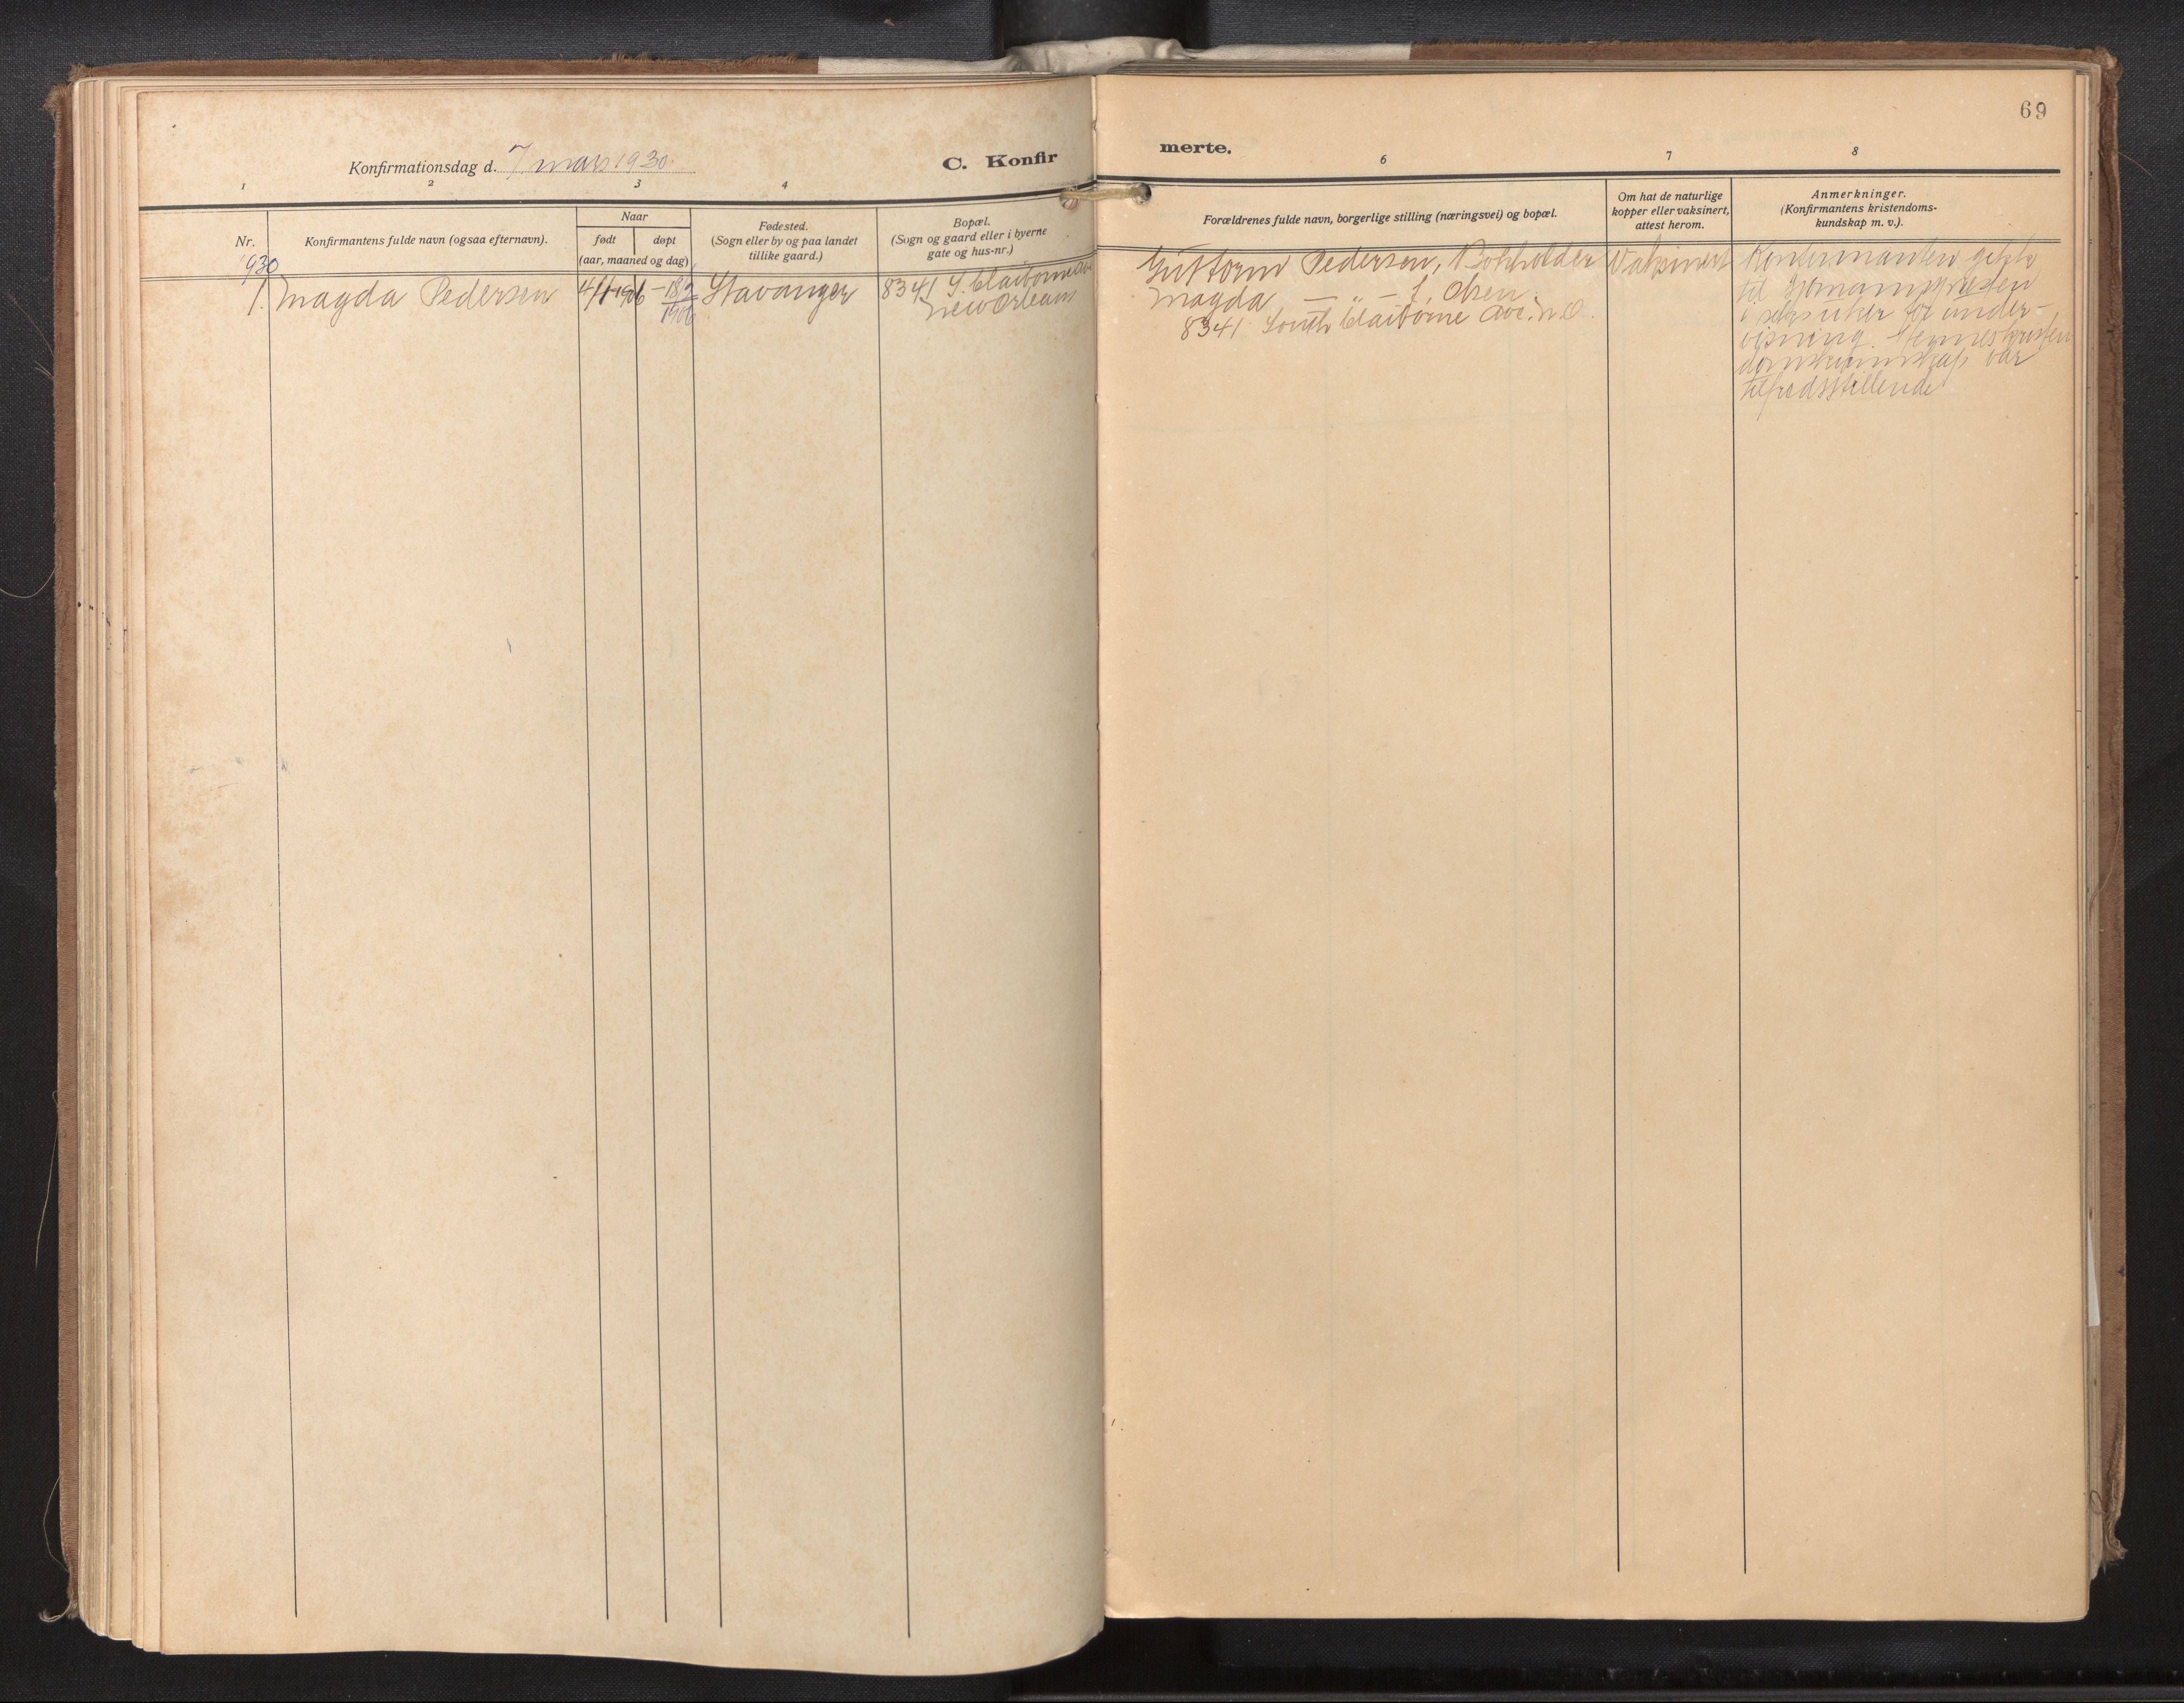 69
Konfirmationsdag d. 7. mars 1930.
C. Konfir
merte.
1
2
3
4
6
7
8
Nr.
Konfirmantens fulde navn (ogsaa efternavn).
Naar
født
døpt
(aar, maaned og dag)
Fødested.
(Sogn eller by og paa landet
tillike gaard.)
Bopæl.
(Sogn og gaard eller i byerne
gate og hus-nr.)
Forældrenes fulde navn, borgerlige stilling (næringsvei) og bopæl.
Om hat de naturlige
kopper eller vaksinert,
attest herom.
Anmerkninger.
(Konfirmantens kristendoms-
kundskap m. v.).
1930
1.
Magda Pedersen
4/1-1906
18/2
1906
Stavanger
8341 S. Claiborne Ave
New Orleans
Guttorm Pedersen, Bokholder
Magda — " — f. Olsen.
8341 South Claiborne Ave. N.O.
Vaksinert
Konfirmanten gikk
til Sjømannspresten
i seks uker for under-
visning. Hennes kristen
domskunnskap var
tilfredsstillende